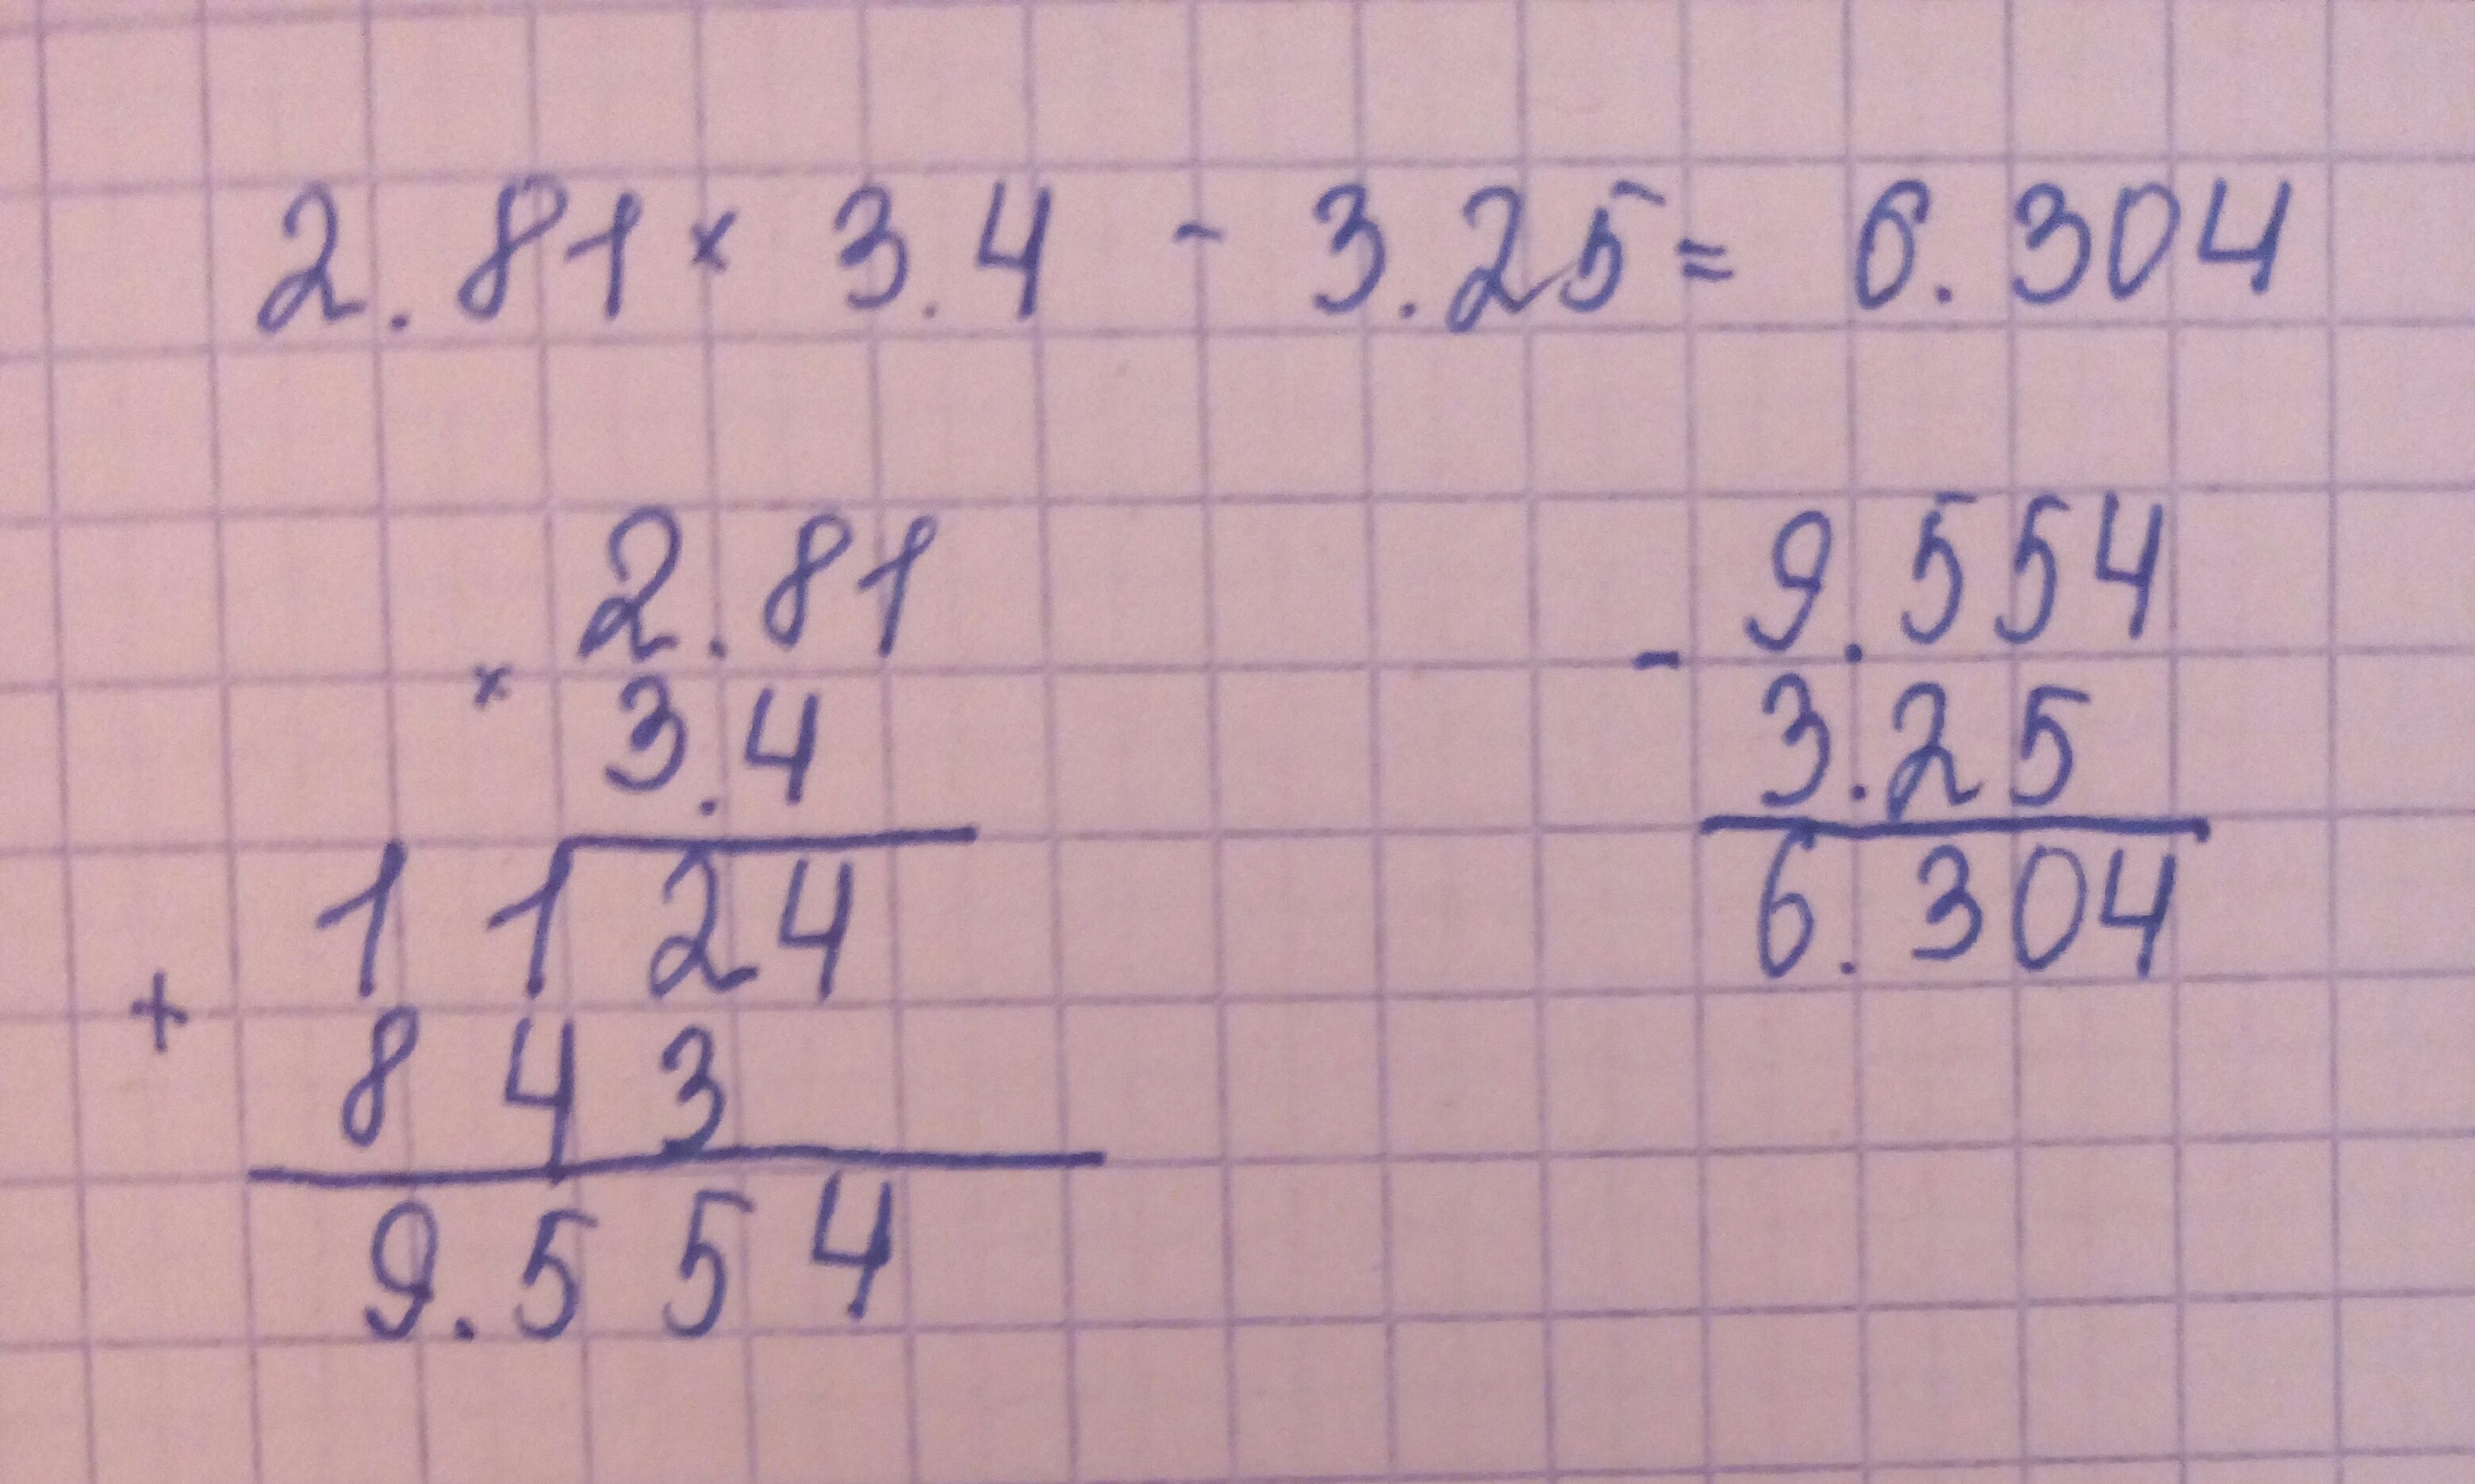 2.81 × 3.4 - 3.25 = 6.304
2.81
× 3.4
1124
+ 843
9.554
9.554
- 3.25
6.304